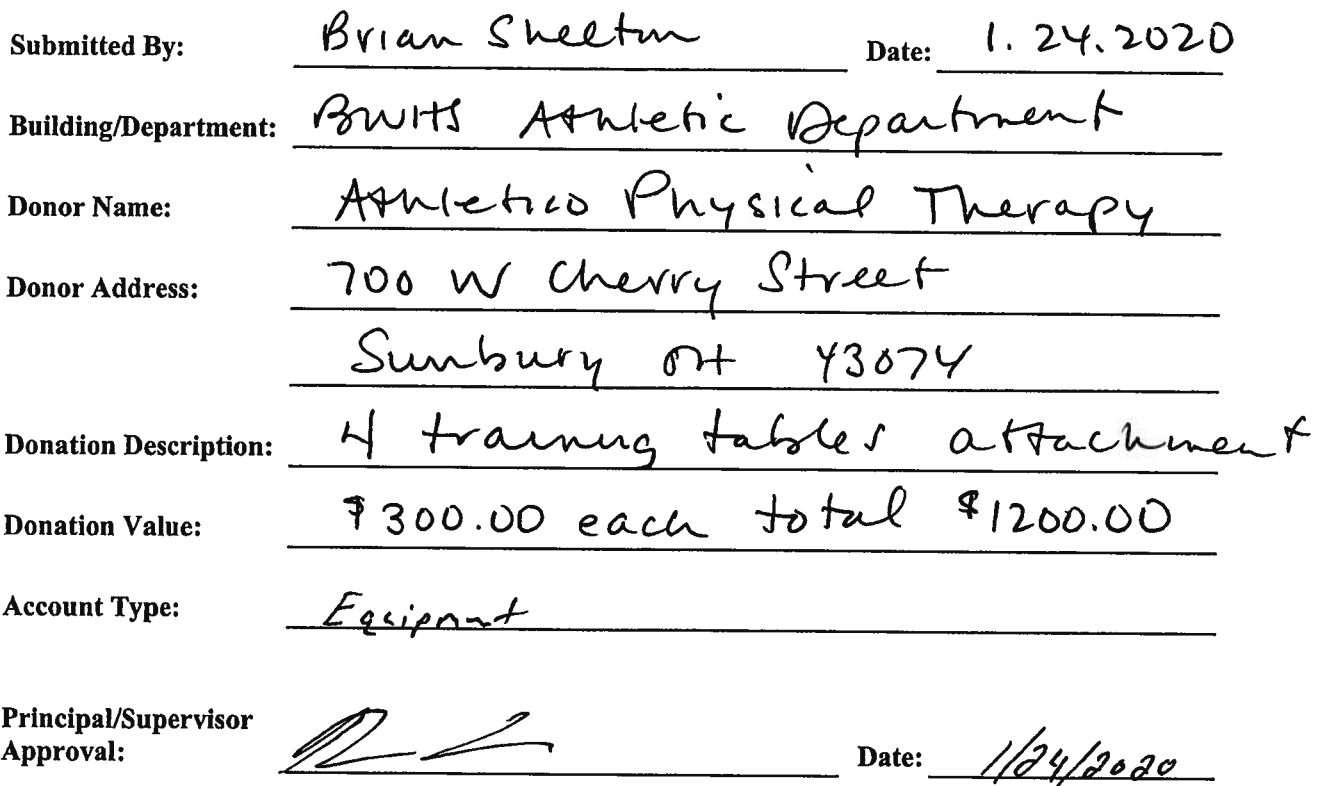 Submitted By: Brian Shelton Date: 1.24.2020
Building/Department: BWHS Athletic Department
Donor Name: Athletico Physical Therapy
Donor Address: 700 W Cherry Street
Sunbury OH 43074
Donation Description: 4 training tables attachment
Donation Value: $300.00 each total $1200.00
Account Type: Equipment
Principal/Supervisor
Approval: Date: 1/24/2020